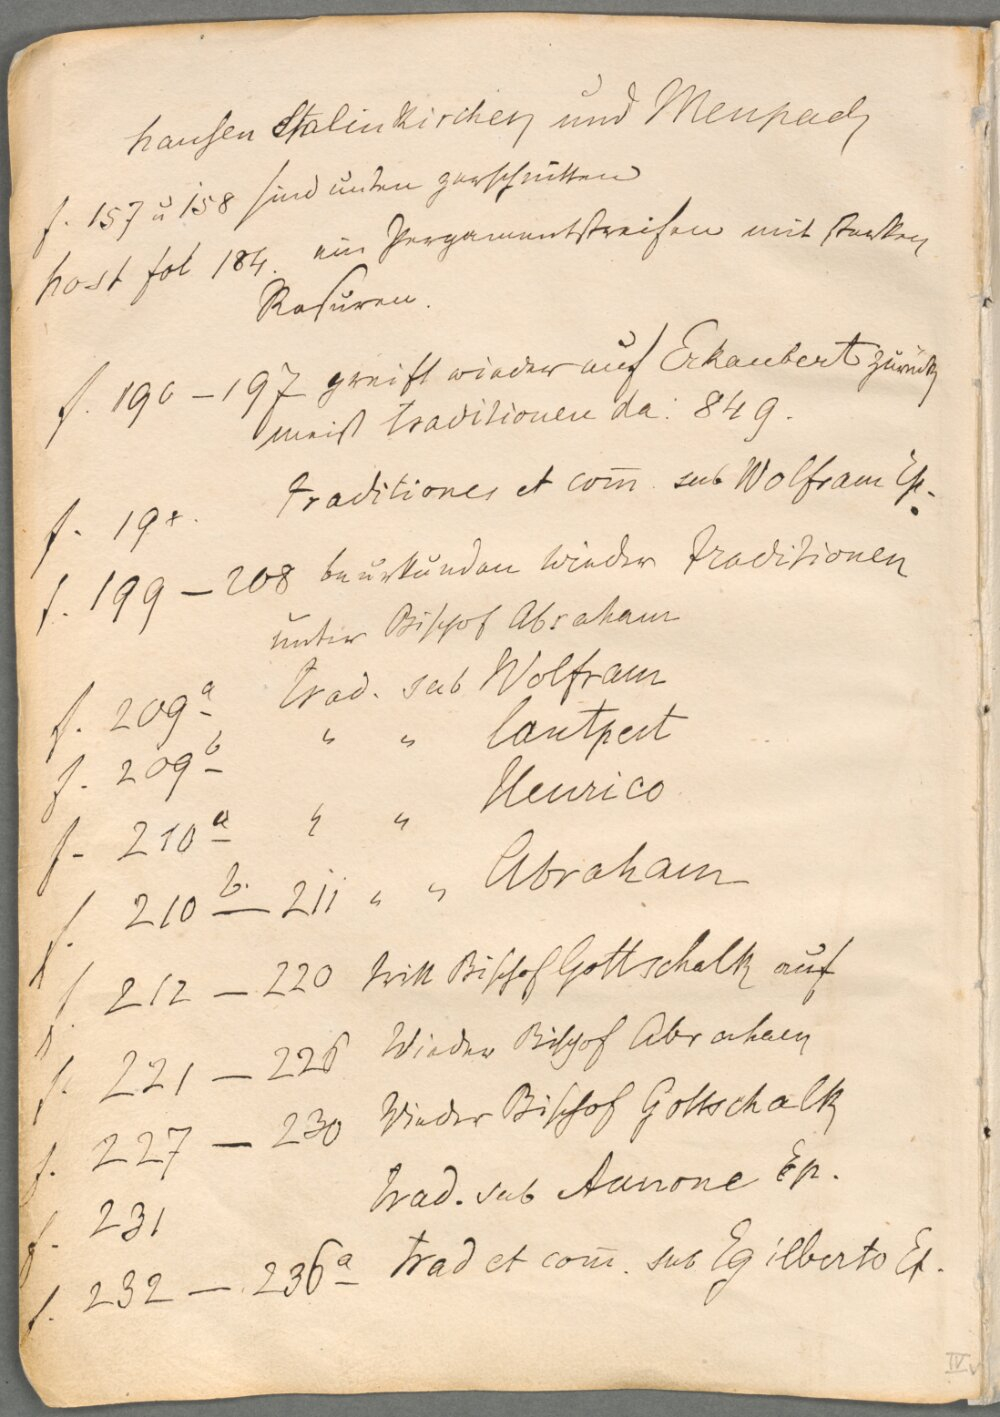 hausen Stalinkirchen und Menpach
f. 157 u 158 sind unten zerschnitten
post fol 184. ein Pergamentstreifen mit starken
Rasuren.
f. 196 – 197 greift wieder auf Erkanbert zurück
meist traditionen da: 849.
f. 198. traditiones et com̅. sub Wolfram Ep.
f. 199 – 208 beurkunden wieder traditionen
unter Bischof Abraham
f. 209a trad. sub Wolfram
f. 209b " " Lantpert
f. 210a " " Henrico
f. 210b. – 211 " " Abraham
f. 212 – 220 tritt Bischof Gottschalk auf
f. 221 – 226 Wieder Bischof Abraham
f. 227 – 230 Wieder Bischof Gottschalk
f. 231 trad. sub Annone Ep.
f. 232 – 236a trad et com̅. sub Egilberto Ep.
IVv